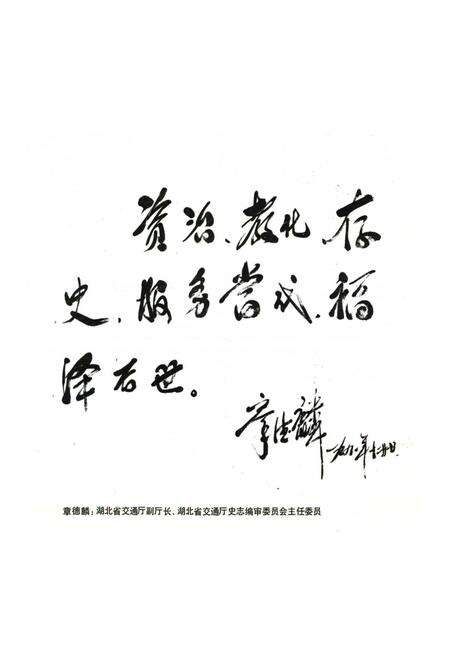 资治、教化、存
史，服务當代，福
泽后世。
章德麟
章德麟：湖北省交通厅副厅长、湖北省交通厅史志编审委员会主任委员